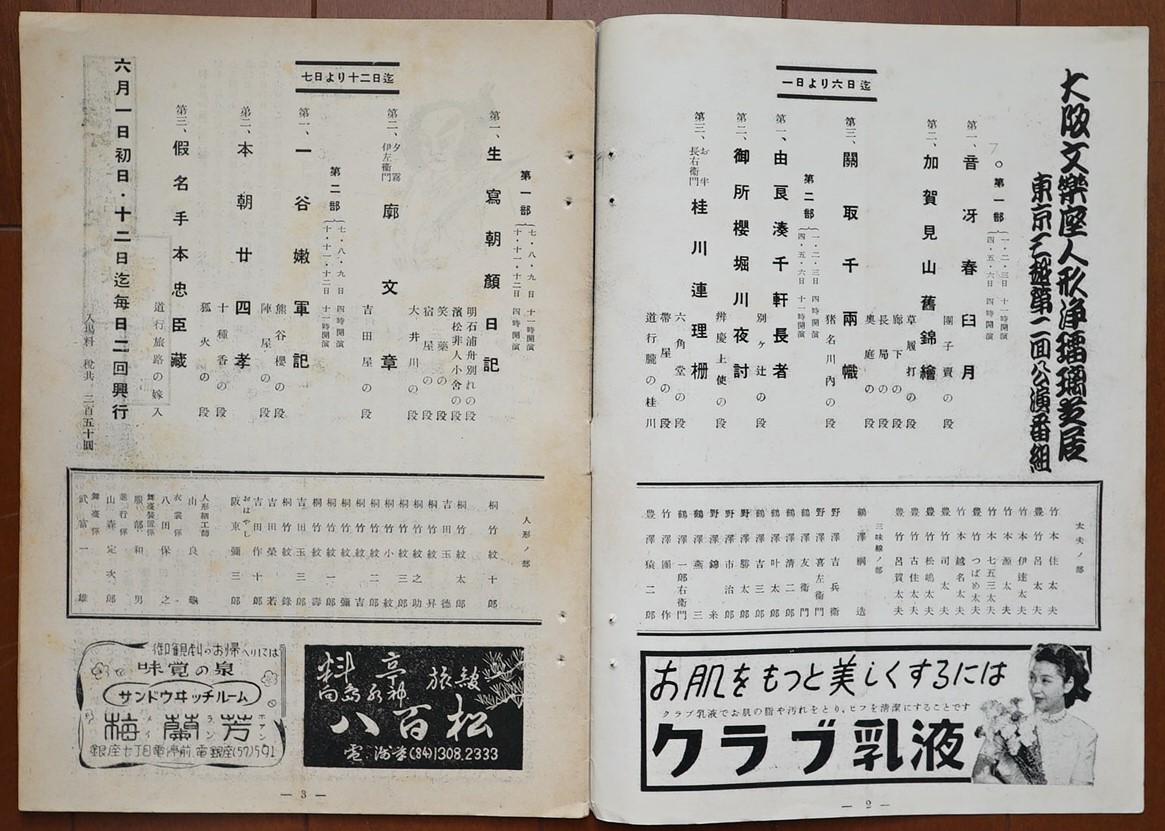 大阪文樂座人形浄瑠璃芝居
東京三越第二回公演番組
一日より六日迄
第一部
一・二・三日 十一時開演
四・五・六日 四時開演
第一、音冴春臼月
團子賣の段
第二、加賀見山舊錦繪
草履打の段
廊下の段
長局の段
奥庭の段
第三、關取千兩幟
猪名川内の段
第二部
一・二・三日 四時開演
四・五・六日 十一時開演
第一、由良湊千軒長者
別ヶ辻の段
第二、御所櫻堀川夜討
辨慶上使の段
第三、お半長右衛門 桂川連理柵
六角堂の段
帶屋の段
道行朧の桂川
太夫ノ部
竹本住太夫
豊竹呂太夫
竹本伊達太夫
竹本源太夫
竹本七五三太夫
竹本越名太夫
豊竹司太夫
豊竹松嶋太夫
豊竹古住太夫
豊竹呂賀太夫
三味線ノ部
鶴澤綱造
野澤吉兵衛
野澤喜左衛門
鶴澤友衛門
鶴澤清二郎
鶴澤叶太郎
鶴澤吉三郎
野澤勝太郎
野澤市治郎
野澤錦糸
鶴澤燕三
豊澤猿二郎
お肌をもっと美しくするには
クラブ乳液でお肌の脂や汚れをとり、ヒフを清潔にすることです
クラブ乳液
— 2 —
七日より十二日迄
第一部
七・八・九日 十一時開演
十・十一・十二日 四時開演
第一、生寫朝顔日記
明石浦舟別れの段
濱松非人小舍の段
笑藥の段
宿屋の段
大井川の段
第二、夕霧伊左衛門 廓文章
吉田屋の段
第二部
七・八・九日 四時開演
十・十一・十二日 十一時開演
第一、一谷嫩軍記
熊谷櫻の段
陣屋の段
第二、本朝廿四孝
十種香の段
狐火の段
第三、假名手本忠臣藏
道行旅路の嫁入
六月一日初日・十二日迄毎日二回興行
入場料 税共、二百五十圓
人形ノ部
桐竹紋十郎
桐竹紋太郎
吉田玉徳
桐竹紋昇
桐竹紋之助
桐竹小紋
桐竹紋二郎
桐竹紋彌
桐竹紋壽
吉田玉三郎
桐竹紋錄
吉田榮若
吉田作十郎
おはやし
阪東彌三郎
人形細工師
山良龜
衣裳係
八田保之
舞臺裝置係
服部和男
進行係
山森定次郎
舞臺係
武富一雄
料亭 旅館
向島水神
八百松
電・浅草(84)1308.2333
御観劇のお帰へりには
味覚の泉
サンドウヰッチルーム
梅蘭芳
メイランホアン
銀座七丁目電停前.電銀座(57)1591
— 3 —